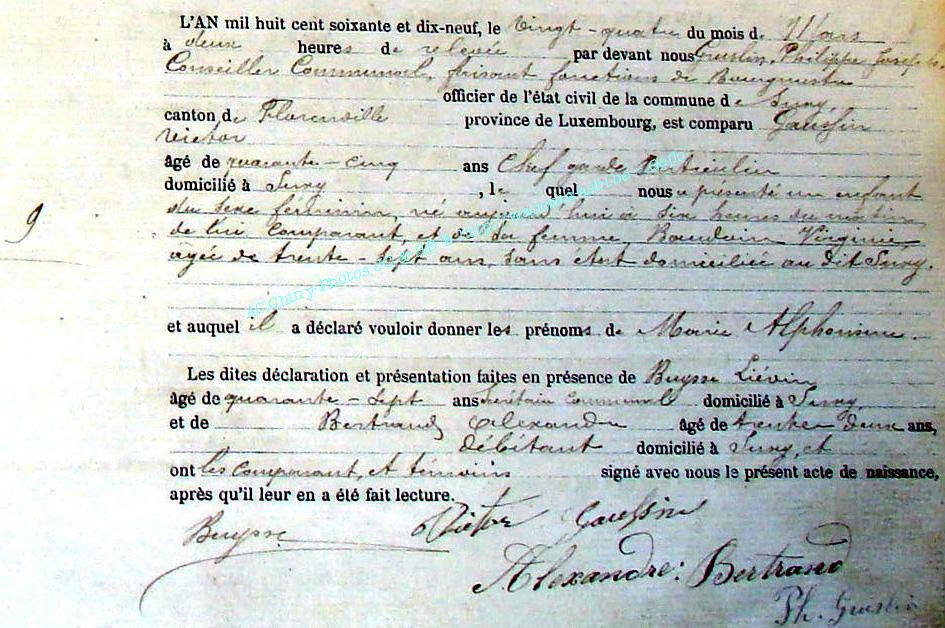 L'AN mil huit cent soixante et dix-neuf, le vingt-quatre du mois de Mars
à deux heures de relevée par devant nous Guslin, Philippe Joseph
Conseiller Communal, faisant fonctions de Bourgmestre
officier de l'état civil de la commune de Suxy,
canton de Florenville province de Luxembourg, est comparu Goussin
Victor
âgé de quarante-cinq ans Chef garde Particulier
domicilié à Suxy, le quel nous a présenté un enfant
9
du sexe féminin, né aujourd'hui à six heures du matin
de lui Comparant, et de sa femme, Baudoin Virginie,
agée de trente-sept ans, sans etat domiciliée au dit Suxy.
et auquel il a déclaré vouloir donner les prénoms de Marie Alphonsine.
Les dites déclaration et présentation faites en présence de Buysse Liévin
âgé de quarante-sept ans secrétaire Communal domicilié à Suxy,
et de Bertrand Alexandre âgé de trente deux ans,
débitant domicilié à Suxy, et
ont les comparant, et témoins signé avec nous le présent acte de naissance,
après qu'il leur en a été fait lecture.
Buysse Victor Goussin
Alexandre: Bertrand
Ph. Guslin